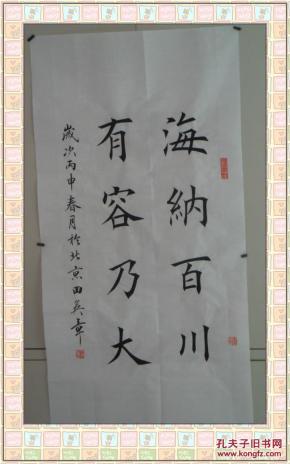 海納百川
有容乃大
歲次丙申春月於北京田英章
孔夫子旧书网
www.kongfz.com